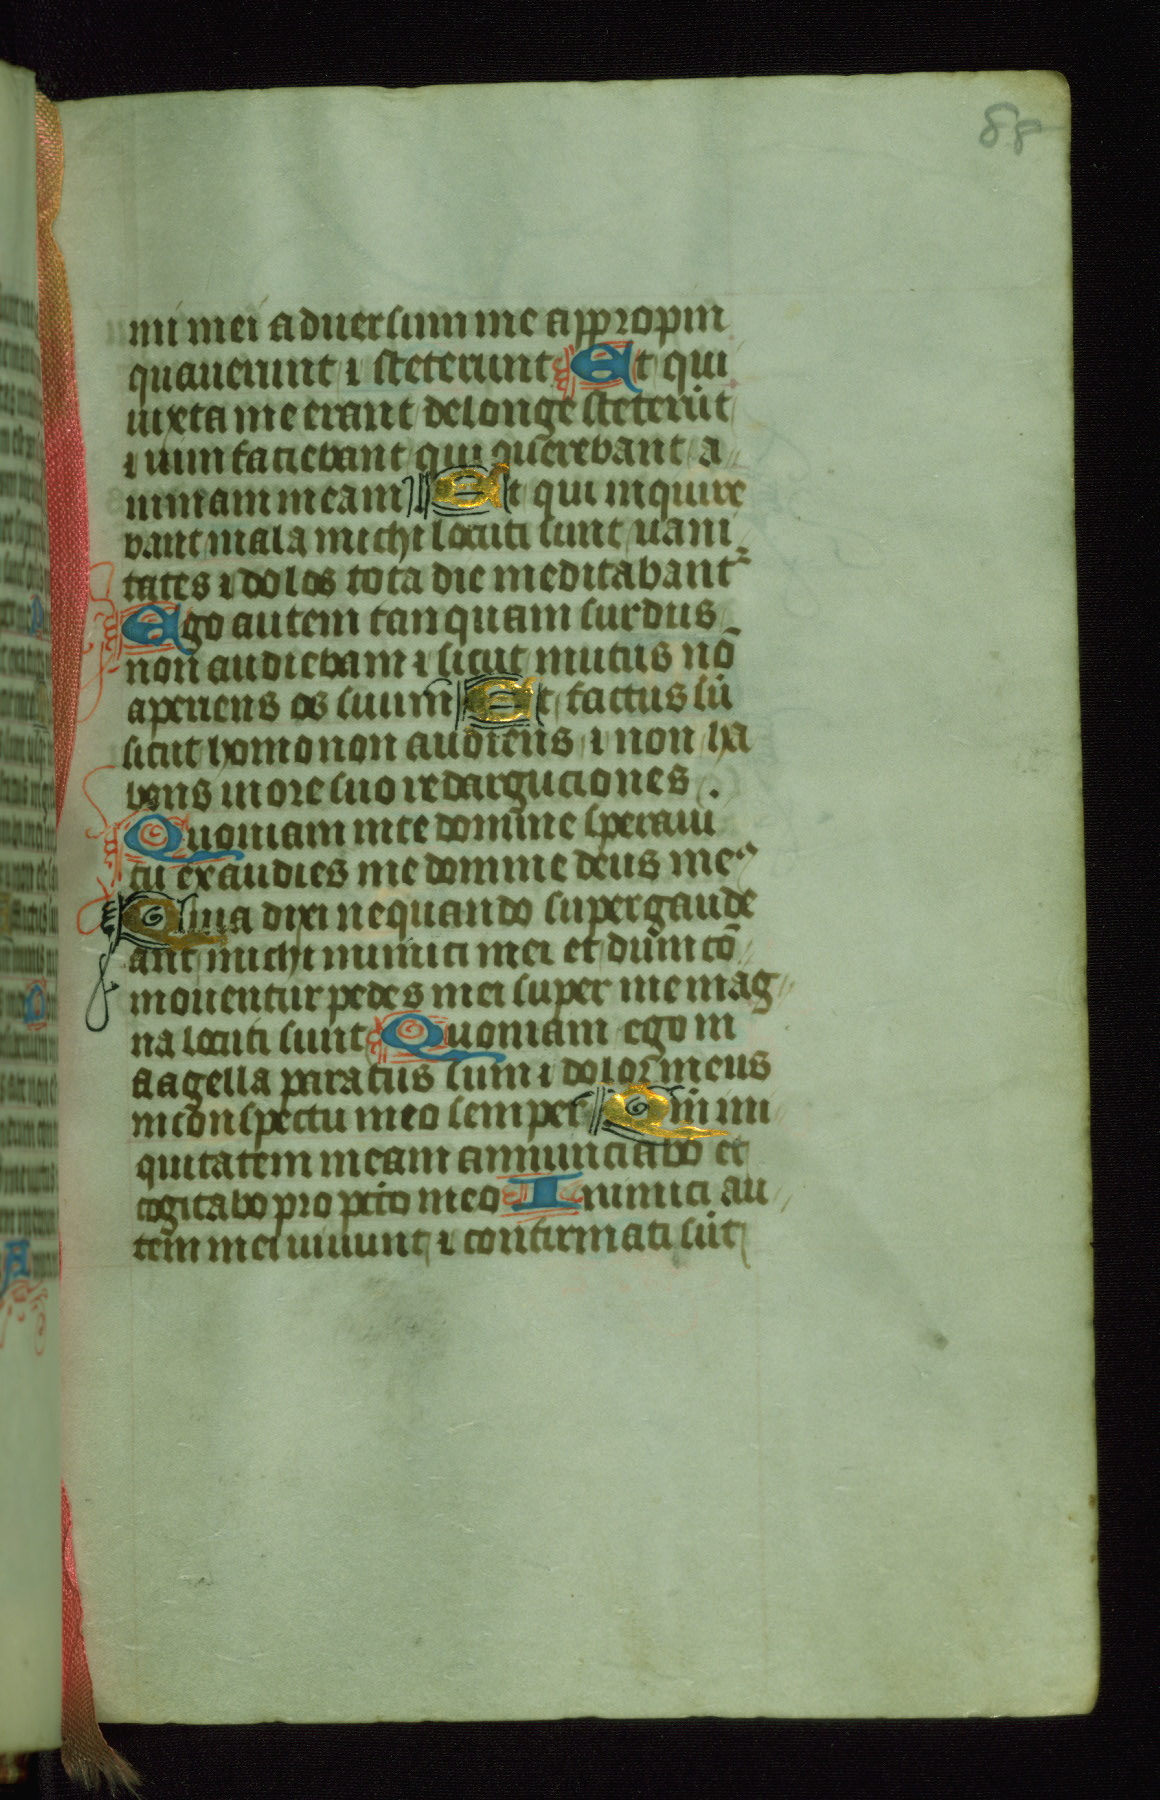 88
mi mei aduersum me appropin
quauerunt ⁊ steterunt Et qui
iuxta me erant delonge steterūt
⁊ uim faciebant qui querebant a
nimam meam Et qui inquire
bant mala michi locuti sunt uani
tates ⁊ dolos tota die meditabantᷣ
Ego autem tanquam surdus
non audiebam ⁊ sicut mutus nō
aperiens os suum Et factus sū
sicut homo non audiens ⁊ non ha
bens in ore suo redarguciones .
Quoniam in te domine speraui
tu exaudies me domine deus meꝰ
Quia dixi nequando supergaude
ant michi inimici mei et dum cō
mouentur pedes mei super me mag
na locuti sunt Quoniam ego in
flagella paratus sum ⁊ dolor meus
in conspectu meo semper Qm̄ ini
quitatem meam annunciabo et
cogitabo pro pctō meo Inimici au
tem mei uiuunt ⁊ confirmati sūt